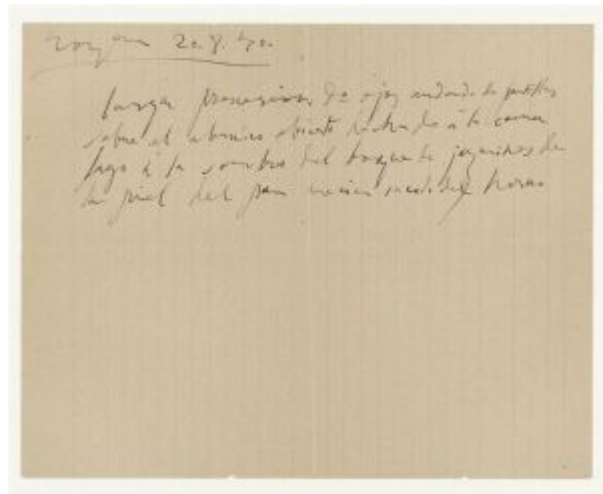 Royan 20.8.40.
larga procesion de ojos andando de puntillas
sobre el abanico abierto de la
bajo la sombra del bosque de jazmines de
la piel del pan recien sacado del horno